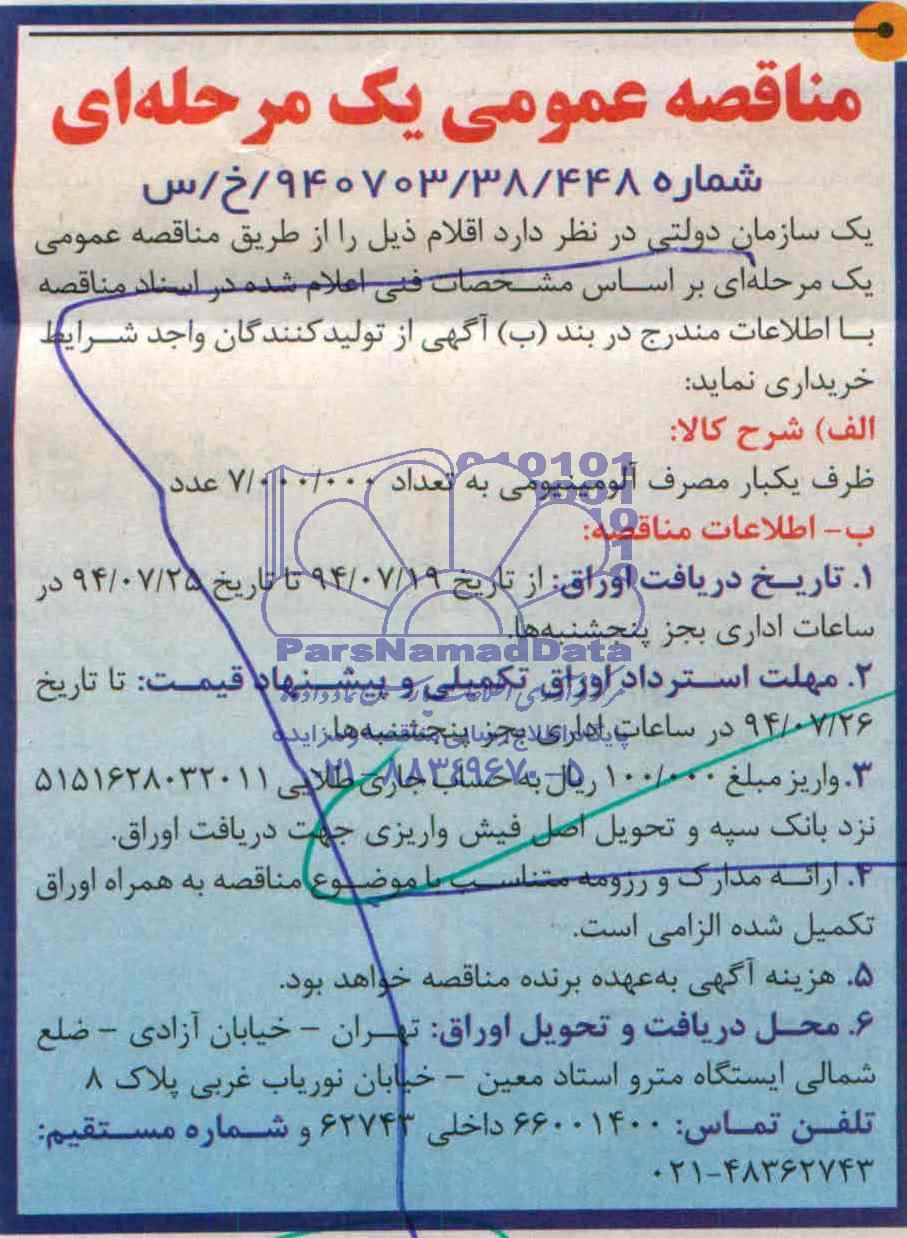 مناقصه عمومی یک مرحله‌ای
شماره ۹۴۰۷۰۳/۳۸/۴۴۸/خ/س
یک سازمان دولتی در نظر دارد اقلام ذیل را از طریق مناقصه عمومی
یک مرحله‌ای بر اساس مشخصات فنی اعلام شده در اسناد مناقصه
با اطلاعات مندرج در بند (ب) آگهی از تولیدکنندگان واجد شرایط
خریداری نماید:
الف) شرح کالا:
ظرف یکبار مصرف آلومینیومی به تعداد ۷/۰۰۰/۰۰۰ عدد
ب- اطلاعات مناقصه:
۱. تاریخ دریافت اوراق: از تاریخ ۹۴/۰۷/۱۹ تا تاریخ ۹۴/۰۷/۲۵ در
ساعات اداری بجز پنجشنبه‌ها.
ParsNamadData
۲. مهلت استرداد اوراق تکمیلی و پیشنهاد قیمت: تا تاریخ
۹۴/۰۷/۲۶ در ساعات اداری بجز پنجشنبه‌ها.
پایگاه اطلاع رسانی مناقصه و مزایده
۰۲۱-۸۸۳۴۹۶۷۰-۵
۳. واریز مبلغ ۱۰۰/۰۰۰ ریال به حساب جاری طلایی ۵۱۵۱۶۲۸۰۳۲۰۱۱
نزد بانک سپه و تحویل اصل فیش واریزی جهت دریافت اوراق.
۴. ارائه مدارک و رزومه متناسب با موضوع مناقصه به همراه اوراق
تکمیل شده الزامی است.
۵. هزینه آگهی به‌عهده برنده مناقصه خواهد بود.
۶. محل دریافت و تحویل اوراق: تهران - خیابان آزادی - ضلع
شمالی ایستگاه مترو استاد معین - خیابان نوریاب غربی پلاک ۸
تلفن تماس: ۶۶۰۰۱۴۰۰ داخلی ۶۲۷۴۳ و شماره مستقیم:
۰۲۱-۴۸۳۶۲۷۴۳